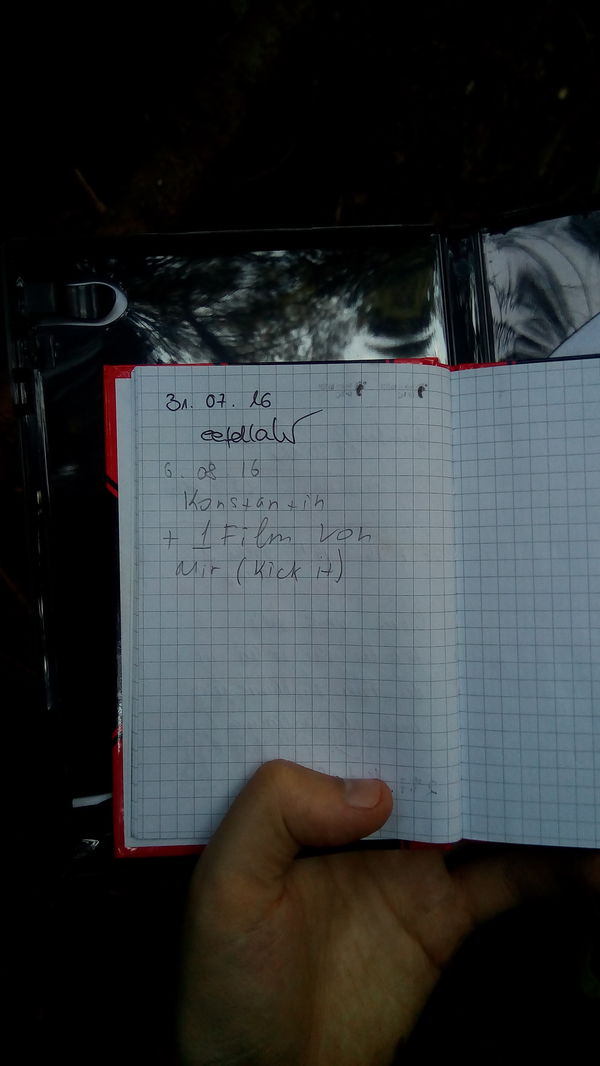 31. 07. 16
6. 08 16
Konstantin
+ 1 Film von
Mir (Kick it)